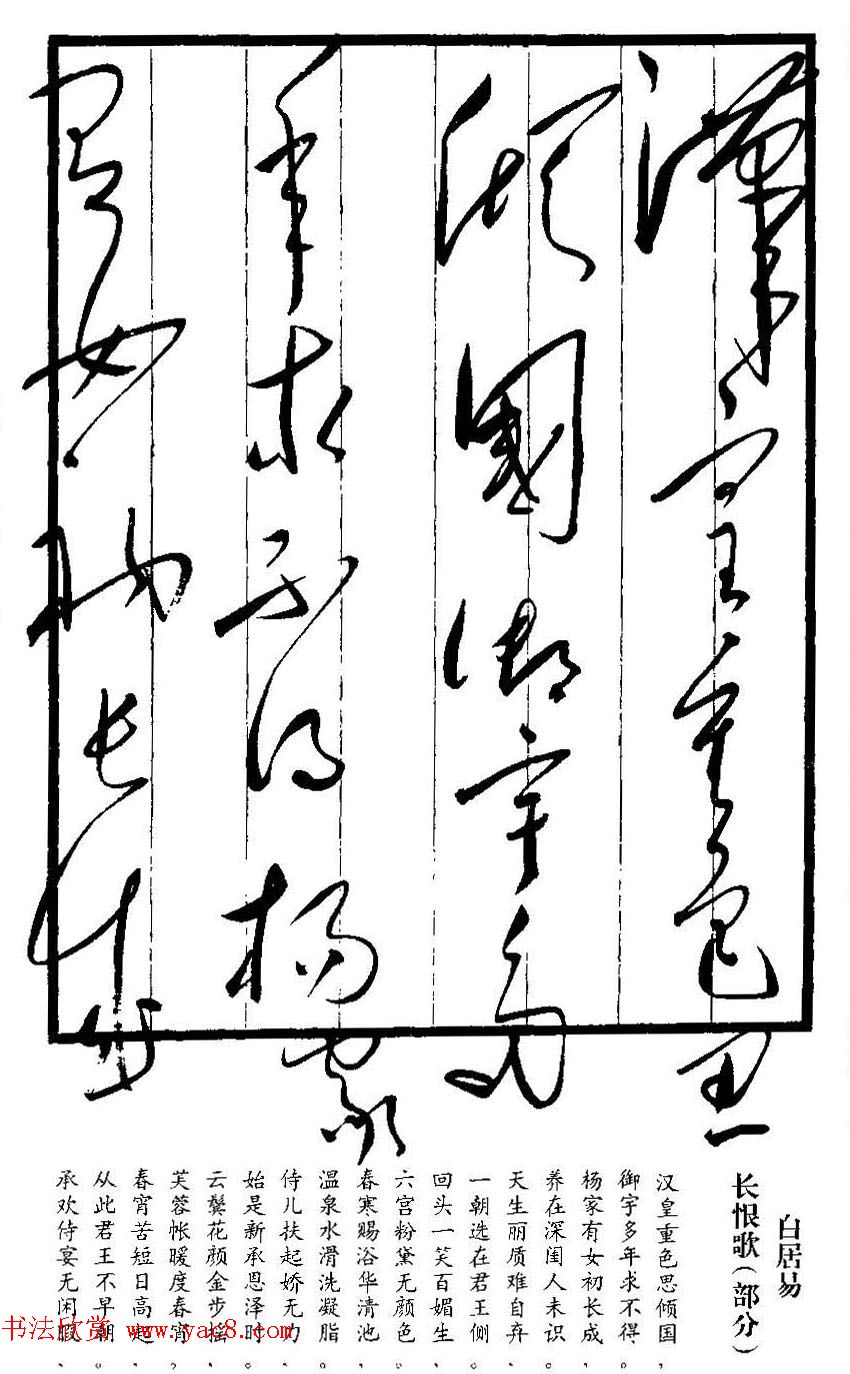 漢皇重色思
傾國御宇多
年求不得楊家
有女初長成
白居易
长恨歌（部分）
汉皇重色思倾国，
御宇多年求不得。
杨家有女初长成，
养在深闺人未识。
天生丽质难自弃，
一朝选在君王侧。
回头一笑百媚生，
六宫粉黛无颜色。
春寒赐浴华清池，
温泉水滑洗凝脂。
侍儿扶起娇无力，
始是新承恩泽时。
云鬓花颜金步摇，
芙蓉帐暖度春宵。
春宵苦短日高起，
从此君王不早朝。
承欢侍宴无闲暇，
书法欣赏 www.yac8.com